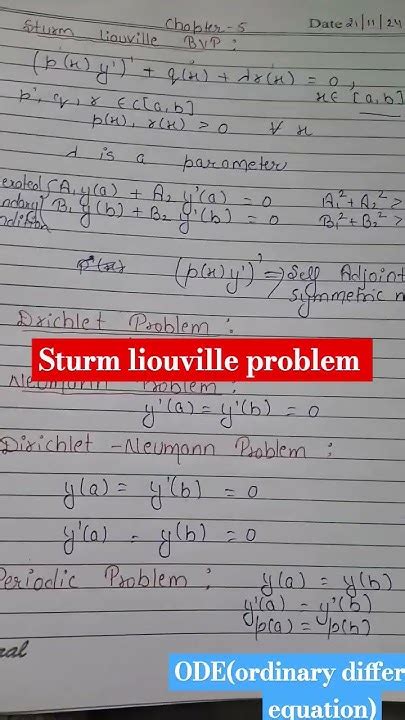 Chapter-5
Date 21/11/24
Sturm liouville BVP:
(p(x) y')' + q(x) + λr(x) = 0,
x∈ [a,b]
p', q, r ∈ C[a,b]
p(x), r(x) > 0 ∀ x
λ is a parameter
erated { A₁ y(a) + A₂ y'(a) = 0 A₁² + A₂² >
ndary B₁ y(b) + B₂ y'(b) = 0 B₁² + B₂² >
ndition
(p(x)y')' ⇒ Self Adjoint
symmetric
Drichlet Problem :
Sturm liouville problem
Neumann Problem :
y'(a) = y'(b) = 0
Dirichlet - Neumann Problem :
y(a) = y'(b) = 0
y'(a) = y(b) = 0
Periodic Problem : y(a) = y(b)
y'(a) = y'(b)
p(a) = p(b)
ODE(ordinary differ
equation)